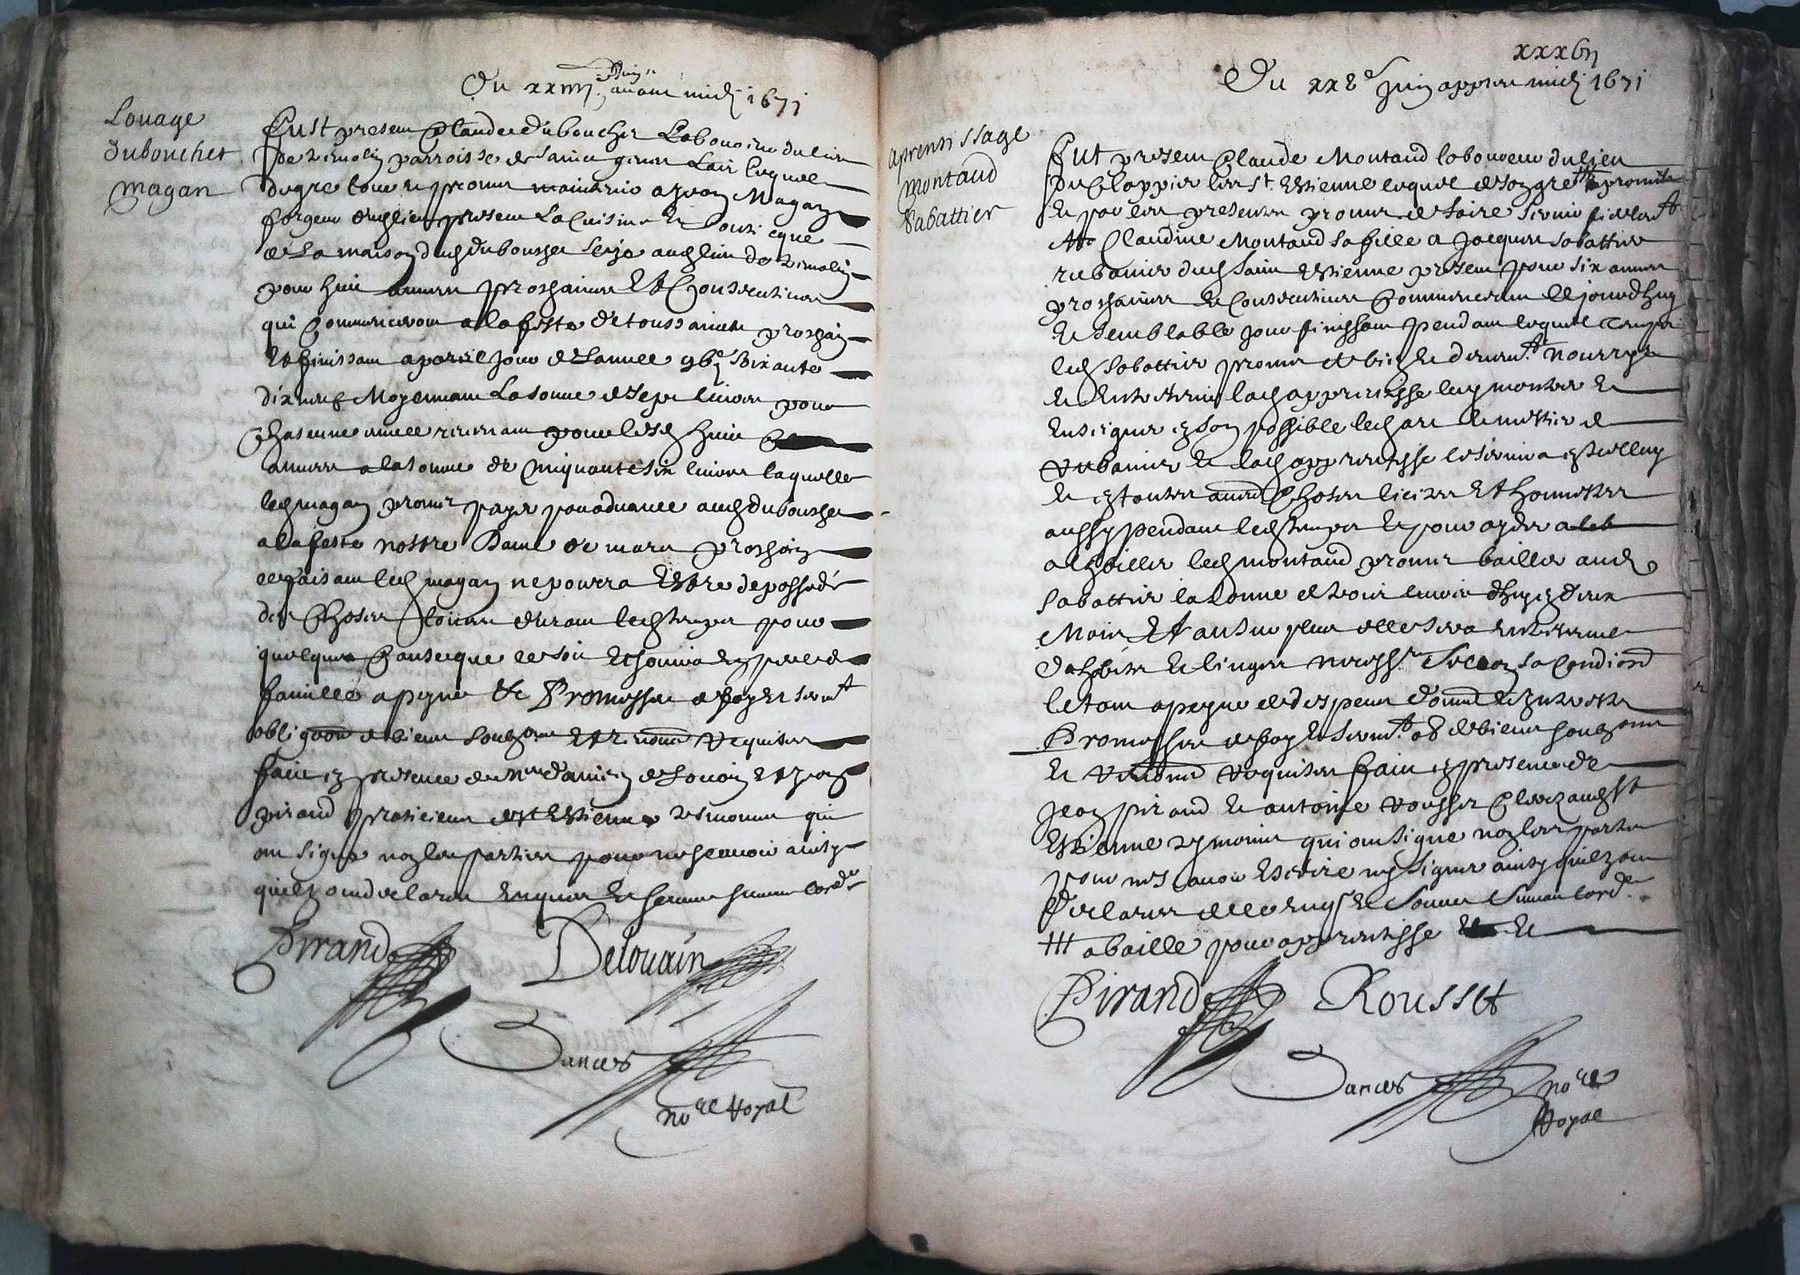 Du xxiiii Juin avant midy 1671
Louage
Dubouchet
Magan
Fust present Claude Dubouchet Laboureur du lieu
de parroisse de sainct genou Lair lequel
de gre loue et promet maintenir a Jean Magan
forgeur dudict lieu present La Cuisine et boutique
de La maison dud dubouchet seize audict lieu de
pour huict annees prochaines Et Consecutives
qui Commenceront a la feste de toussaincts prochain
Et finissant a pareil jour de Lannee 96c Soixante
dix neuf Moyennant La somme de sept livres pour
Chascune annee revenant pour lesd huict
annees a la somme de Cinquante six livres laquelle
led magan promet payer par advance aud dubouchet
a la feste nostre Dame de mars prochain
ce faisant led magan ne pourra Estre depossede
des Choses louees durant led temps pour
quelque Cause que ce soit Et jouira en pere de
famille a peyne &c Promesses de foy et serment
obligaon de biens soubzons Et renonc requises
faict en presence de Damien de Louain Et Jean
pirand praticiens de St Estienne tesmoins qui
ont signe non les parties pour ne scavoir ainsy
quilz ont declare enquis et somme suivant lord.ce
Pirand Delouain
Dances
no.re Royal
xxxvii
Du xxv Juin appres midy 1671
aprentissage
Montaud
Sabattier
Fut present Claude Montaud laboureur du lieu
Du Clappier les St Estienne lequel de son gre ttt a promis
Et par ces presentes promet de faire servir fidelemt
Claudine Montaud sa fille a Jacques sabattier
rubanier dud Sainct Estienne present pour six annees
prochaines Et Consecutives Commenceront ce jourdhuy
Et semblable jour finissant pendant lequel temps
led sabattier promet de bien et deuemt nourryr
et Entretenir lad apprentisse luy monstrer et
enseigner a son possible led art et mestier de
rubanier et lad apprentisse le servira en Icelluy
et en toutes aures Choses licites Et honnestes
aussy pendant led temps et pour ayder
a lhabiller led montaud promet bailler aud
sabattier la somme de trois livres dhuy en deux
Mois Et au surplus elle sera entretenue
Dhabits et linges necess.res Selon sa Condiond
le tout a peyne de despens dom et Interests
Promesses de foy et serm.t ob de biens soubzons
Et renonc requises faict en presence de
Jean pirand et antoine rousset Clercz aud St
Estienne tesmoins qui ont signe non les parties
pour ne scavoir Escrire ny signer ainsy quilz ont
Declare de ce enquis Et Somme Suivant lord.ce
ttt a baille pour apprentisse et
Pirand Rousset
Dances no.re
Royal